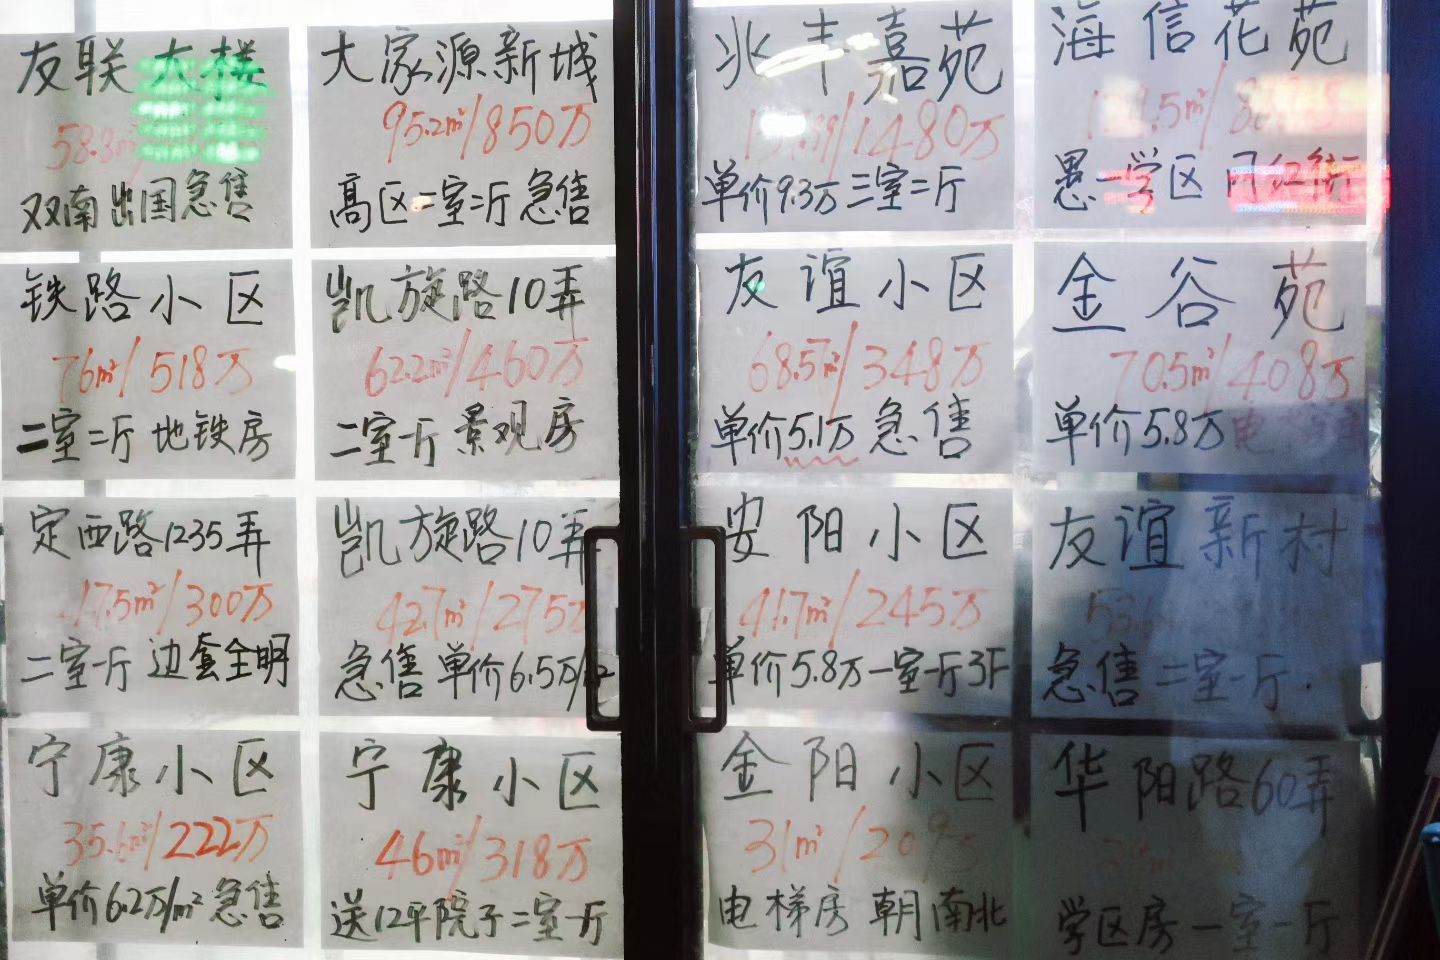 友联大楼
58.8m²
双南出国急售
大家源新城
95.2m²/850万
高区二室二厅 急售
兆丰嘉苑
/1480万
单价9.3万 三室二厅
海信花苑
.5m²/
愚一学区
铁路小区
76m²/518万
二室二厅 地铁房
凯旋路10弄
62.2m²/460万
二室一厅 景观房
友谊小区
68.5m²/348万
单价5.1万 急售
金谷苑
70.5m²/408万
单价5.8万
定西路1235弄
47.5m²/300万
二室一厅 边套全明
凯旋路10弄
42.7m²/275万
急售 单价6.5万/m²
安阳小区
41.7m²/245万
单价5.8万一室一厅3F
友谊新村
急售 二室一厅.
宁康小区
35.6m²/222万
单价6.2万/m² 急售
宁康小区
46m²/318万
送12平院子二室一厅
金阳小区
31m²/209万
电梯房 朝南北
华阳路60弄
学区房 一室一厅